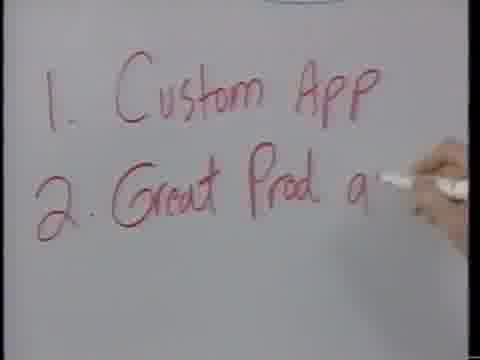 1. Custom App
2. Great Prod a